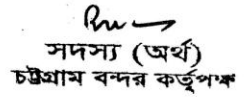 সদস্য (অর্থ)
চট্টগ্রাম বন্দর কর্তৃপক্ষ